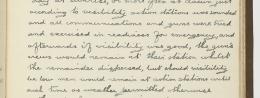 day at sunrise, or more often at dawn just
according to visibility, action stations was sounded
and all communications and guns were tried
and exercised in readiness for emergency, and
afterwards if visibility was good, the guns
crews would remain at their station whilst
the remainder dispersed, but should visibility
be low men would remain at action stations until
such time as weather permitted otherwise